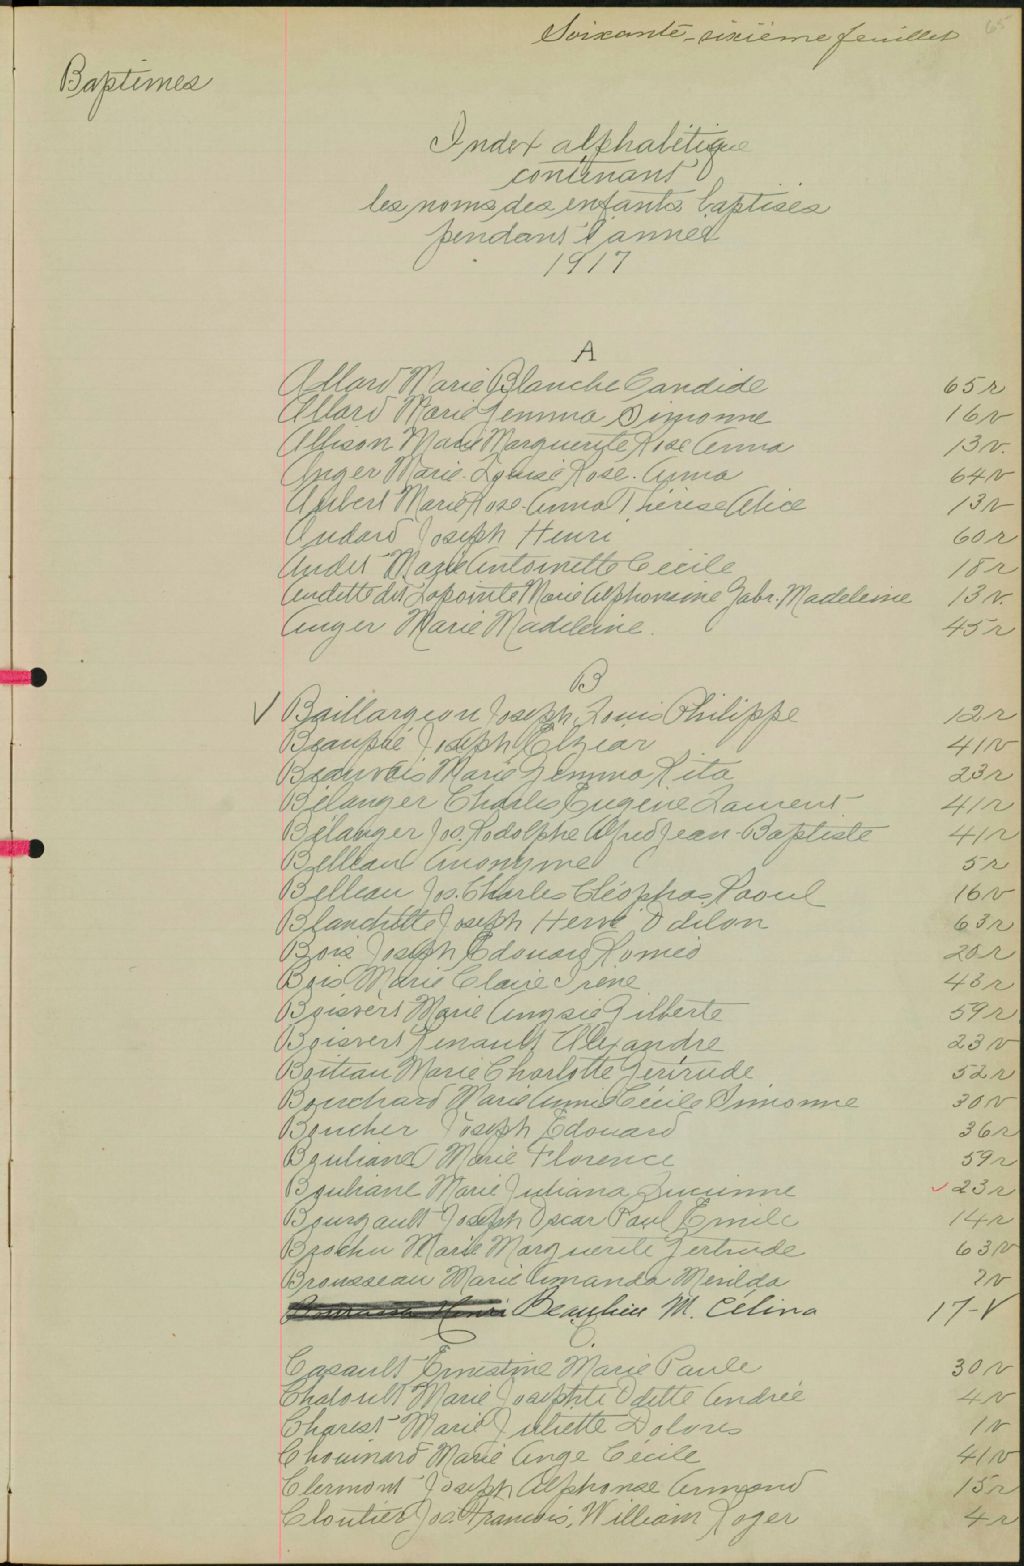 Soixante-sixième feuillet 65
Baptêmes
Index alphabétique
contenant
les noms des enfants baptisés
pendant l'année
1917
A
Allard Marie Blanche Candide 65 r
Allard Marie Gemma Simonne 16 v
Allison Marie Marguerite Rose Anna 13 v.
Anger Marie-Louise Rose-Anna 64 v
Aubert Marie Rose-Anna Thérèse Alice 13 v
Audard Joseph Henri 60 r
Audet Marie Antoinette Cécile 18 r
Audette dit Lapointe Marie Alphonsine Gabr. Madeleine 13 v.
Auger Marie Madeleine. 45 r
B
√ Baillargeon Joseph Louis Philippe 12 r
Beaupré Joseph Elzéar 41 v
Beauvais Marie Gemma Rita 23 r
Bélanger Charles Eugène Laurent 41 r
Bélanger Jos. Rodolphe Alfred Jean-Baptiste 41 r
Belleau Anonyme 5 r
Belleau Jos. Charles Cléophas Raoul 16 v
Blanchette Joseph Hervé Odilon 63 r
Bois Joseph Edouard Roméo 20 r
Bois Marie Claire Irène 43 r
Boisvert Marie Anysie Gilberte 59 r
Boisvert Renault Alexandre 23 v
Boiteau Marie Charlotte Gertrude 52 r
Bouchard Marie Anne Cécile Simonne 30 v
Boucher Joseph Edouard 36 r
Bouliane Marie Florence 59 r
Bouliane Marie Juliana Lucienne ✓ 23 r
Bourgault Joseph Oscar Paul Emile 14 r
Brochu Marie Marguerite Gertrude 63 v
Brousseau Marie Amanda Merilda 2 v
Beaulieu M. Célina 17-V
C.
Casault Ernestine Marie Paule 30 v
Chaloult Marie Josephte Odette Andrée 4 v
Charest Marie Juliette Dolores 1 v
Chouinard Marie Ange Cécile 41 v
Clermont Joseph Alphonse Armand 15 r
Cloutier Jos. Francois, William Roger 4 r